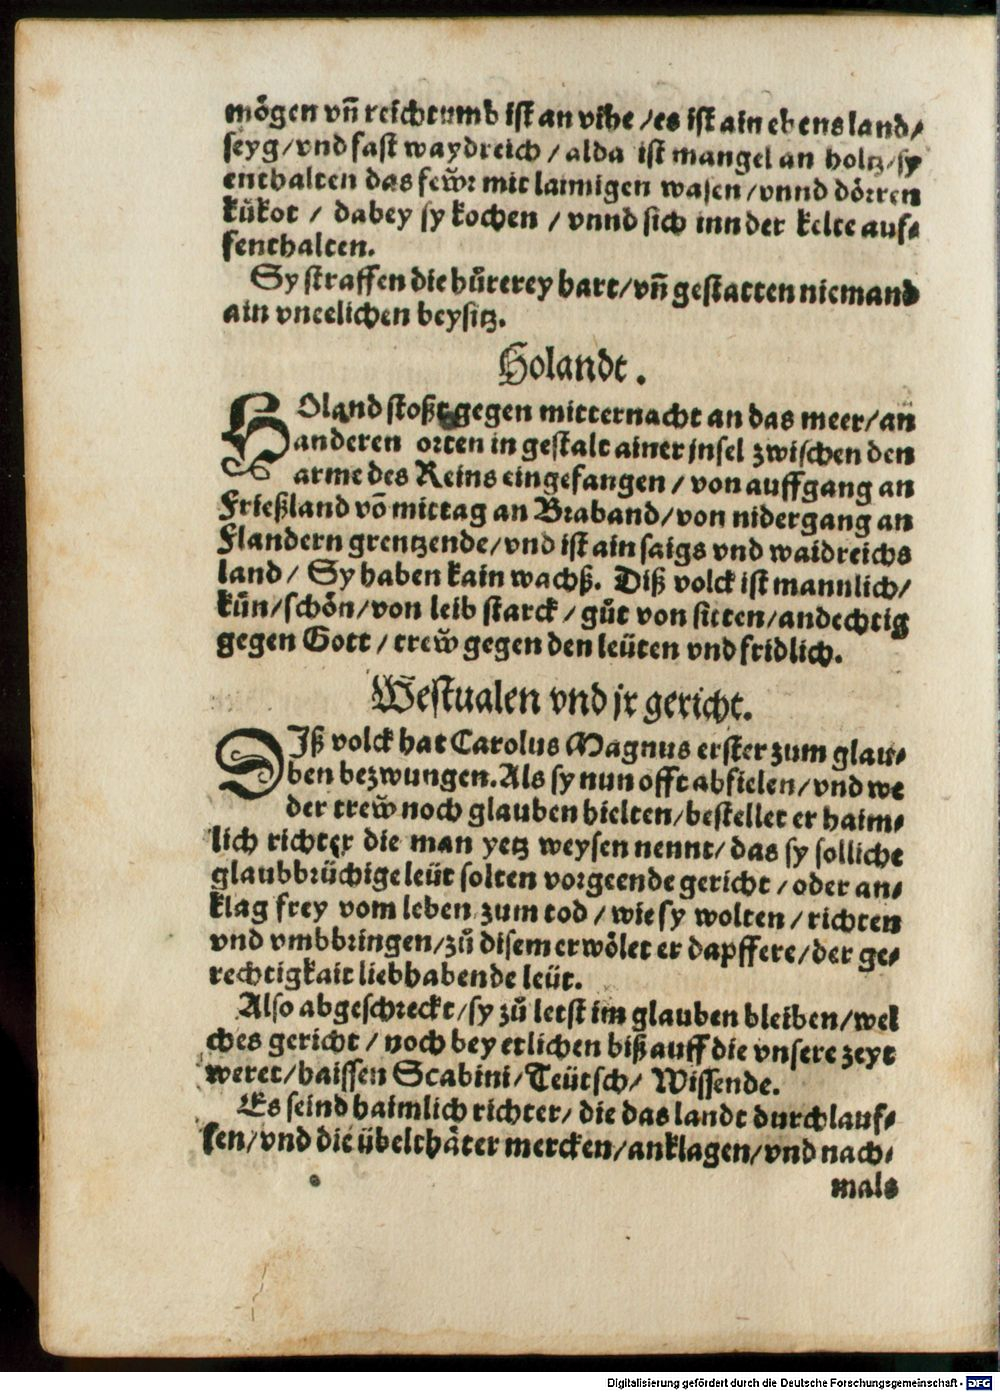 mögen vñ reichtumb ist an vihe /es ist ain ebens land/
seyg/vnd fast waydreich / alda ist mangel an holtz/sy
enthalten das fewr mit laimigen wasen/vnnd dörren
kůkot / dabey sy kochen / vnnd sich inn der kelte auf⸗
fenthalten.
Sy straffen die hůrerey hart/vñ gestatten niemand
ain vneelichen beysitz.
Holandt.
HOland stoßt gegen mitternacht an das meer/an
anderen orten in gestalt ainer jnsel zwischen den
arme des Reins eingefangen / von auffgang an
Frießland võ mittag an Braband/von nidergang an
Flandern grentzende/vnd ist ain saigs vnd waidreichs
land/ Sy haben kain wachß. Diß volck ist mannlich/
kůn/schön/von leib starck / gůt von sitten/andechtig
gegen Gott / trew̃ gegen den leüten vnd fridlich.
Westualen vnd jr gericht.
DIß volck hat Carolus Magnus erster zum glau⸗
ben bezwungen. Als sy nun offt abfielen/vnd we
der trew̃ noch glauben hielten/bestellet er haim⸗
lich richter die man yetz weysen nennt/das sy solliche
glaubbrüchige leüt solten vorgeende gericht / oder an⸗
klag frey vom leben zum tod / wie sy wolten / richten
vnd vmbbringen/zů disem erwölet er dapffere/der ge⸗
rechtigkait liebhabende leüt.
Also abgeschreckt/sy zů letst im glauben bleiben/wel
ches gericht / noch bey etlichen biß auff die vnsere zeyt
weret/haissen Scabini/Teütsch/ Wissende.
Es seind haimlich richter/ die das landt durchlauf⸗
fen/vnd die übelthäter mercken/anklagen/vnd nach⸗
mals
Digitalisierung gefördert durch die Deutsche Forschungsgemeinschaft - DFG